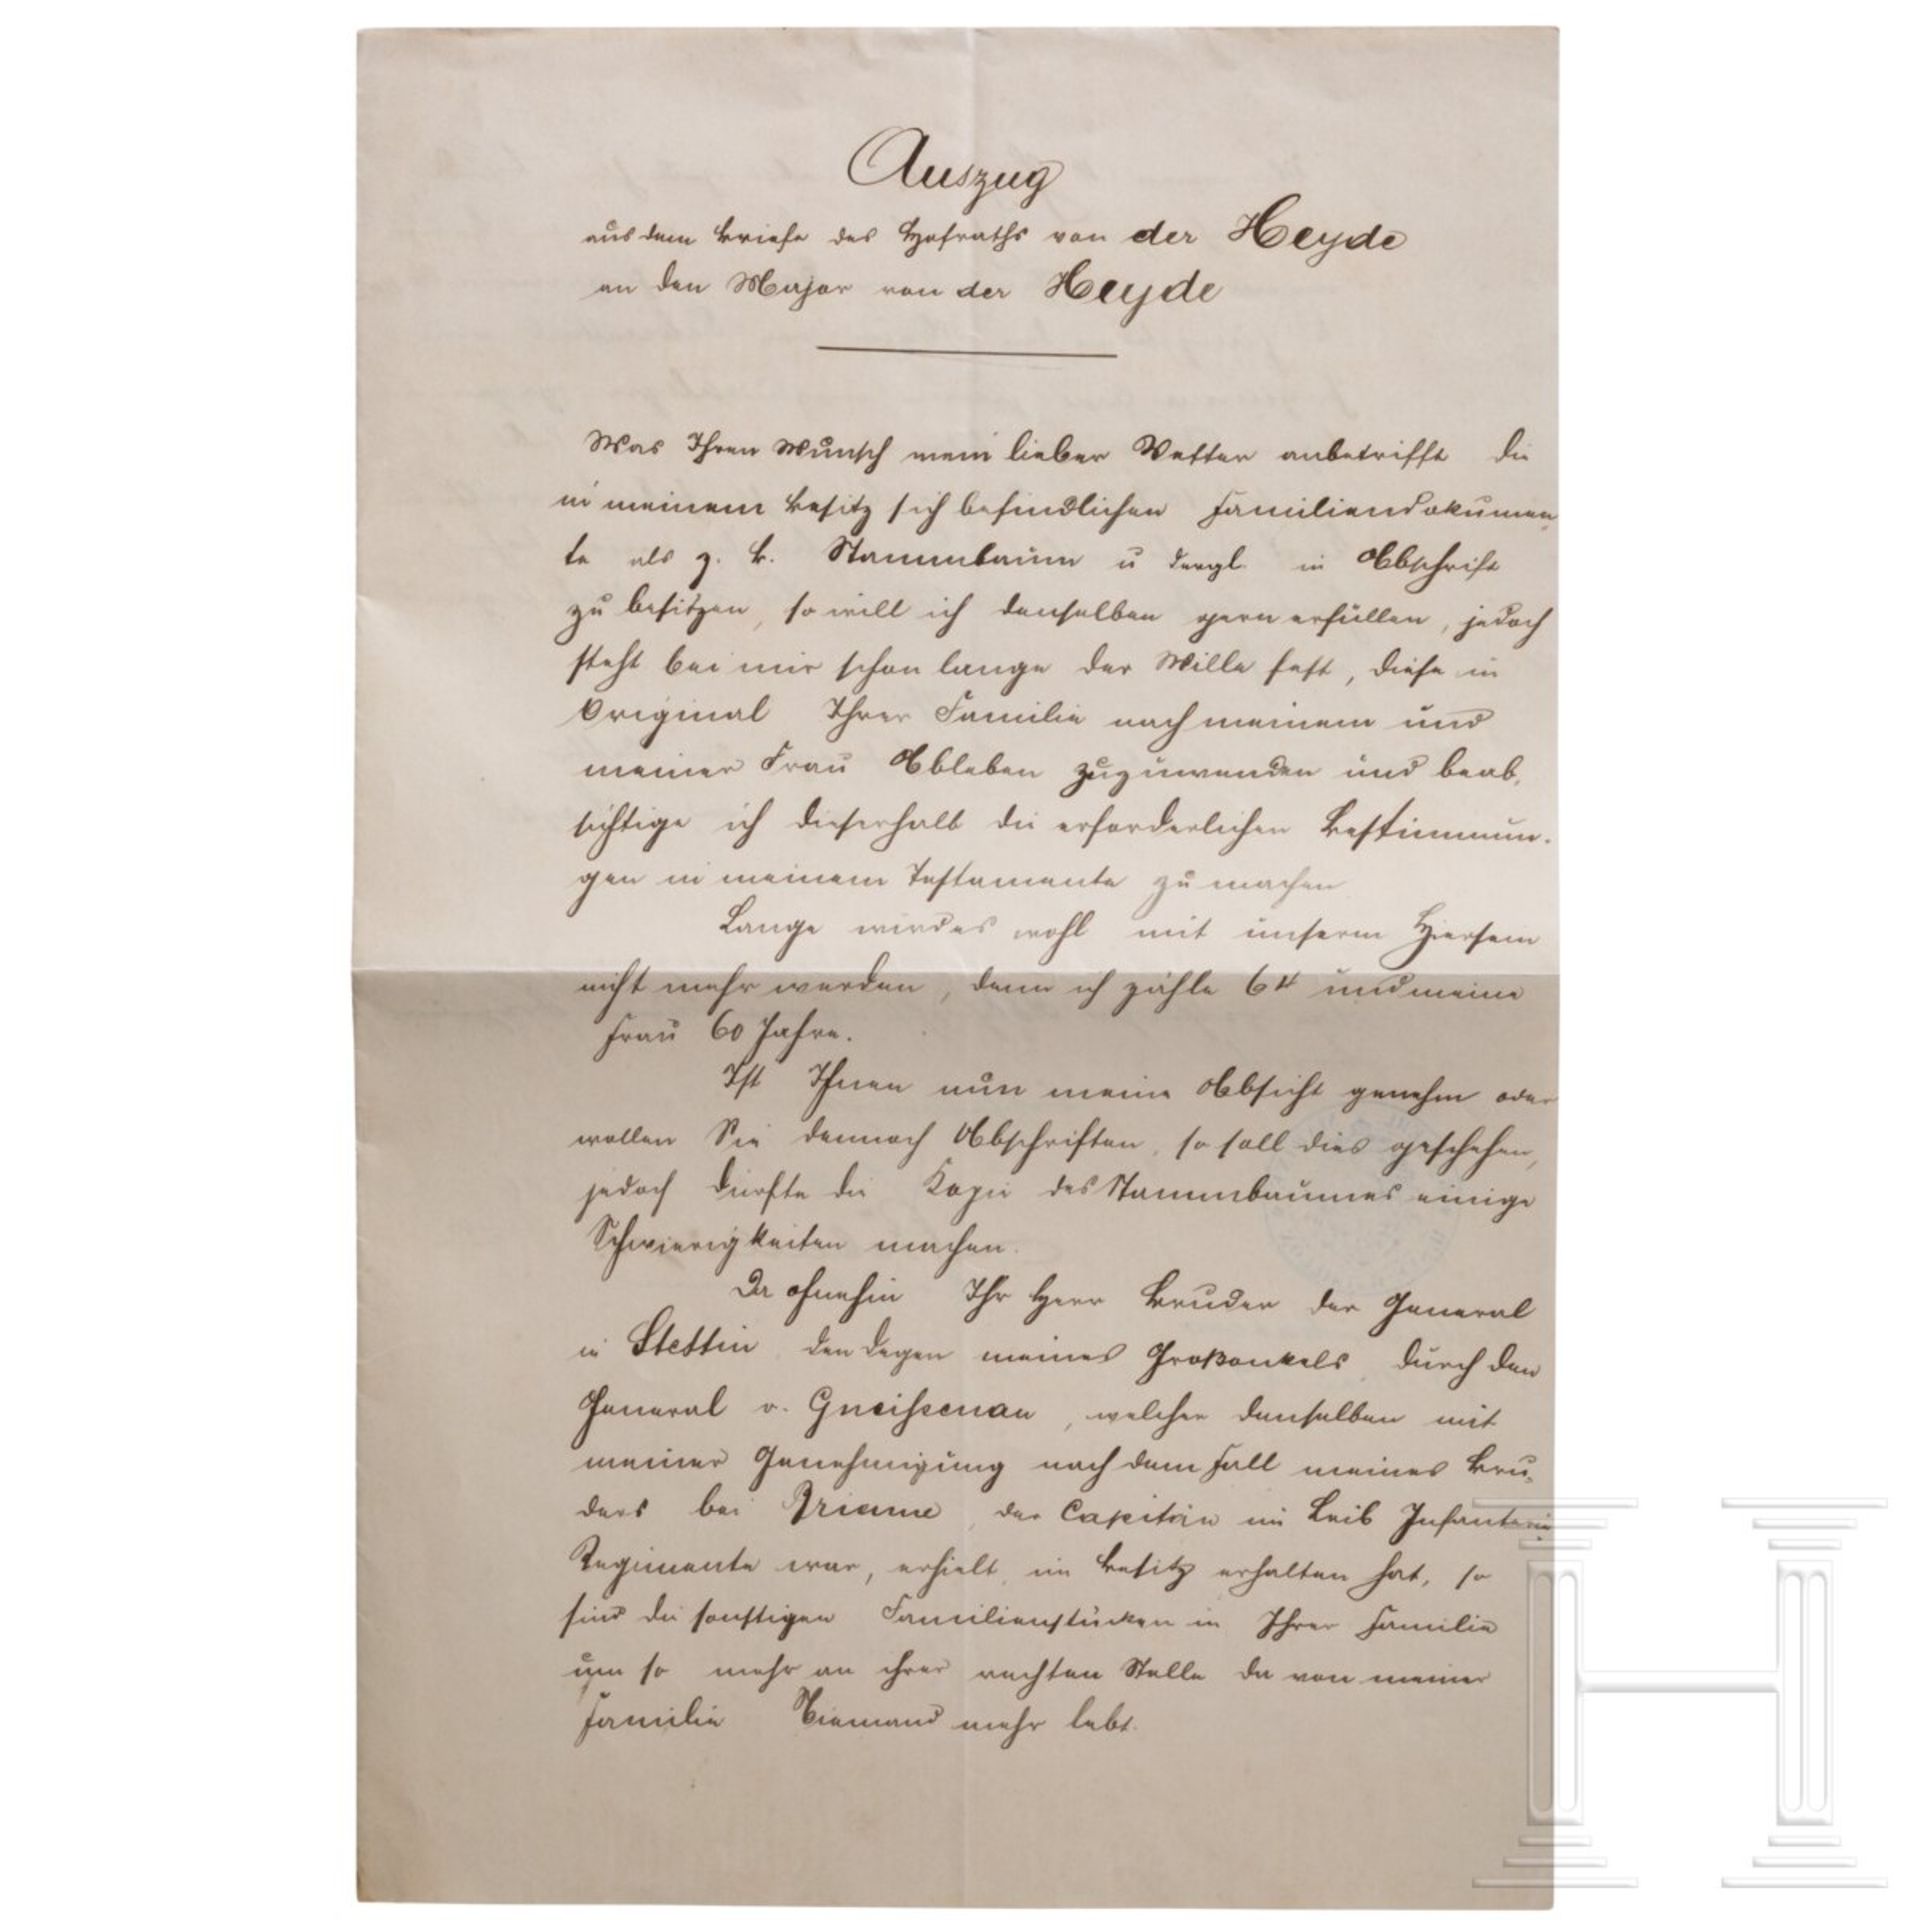 Auszug
aus dem Briefe des Hofraths von der Heyde
an den Major von der Heyde
Was Ihren Wunsch mein lieber Vetter anbetrifft die
in meinem Besitz sich befindlichen Familiendokumen
te als z. B. Stammbaum u dergl. in Abschrift
zu besitzen, so will ich denselben gern erfüllen, jedoch
steht bei mir schon lange der Wille fest, diese in
Original Ihrer Familie nach meinem und
meiner Frau Ableben zuzuwenden und beab-
sichtige ich dieserhalb die erforderlichen Bestimmun-
gen in meinem Testamente zu machen
Lange wird es wohl mit unserm Hiersein
nicht mehr werden, denn ich zähle 64 und meine
Frau 60 Jahre.
Ist Ihnen nun meine Absicht genehm oder
wollen Sie dennoch Abschriften, so soll dies geschehen,
jedoch dürfte die Kopie des Stammbaumes einige
Schwierigkeiten machen.
Da ohnehin Ihr Herr Bruder der General
in Stettin den Degen meines Großonkels durch den
General v. Gneißenau, welcher denselben mit
meiner Genehmigung nach dem Fall meines Bru-
ders bei Brienne, der Capitän im Leib Infanterie
Regimente war, erhielt, im Besitz erhalten hat, so
sind die sonstigen Familienstücken in Ihrer Familie
um so mehr an ihrer rechten Stelle da von meiner
Familie Niemand mehr lebt.
H